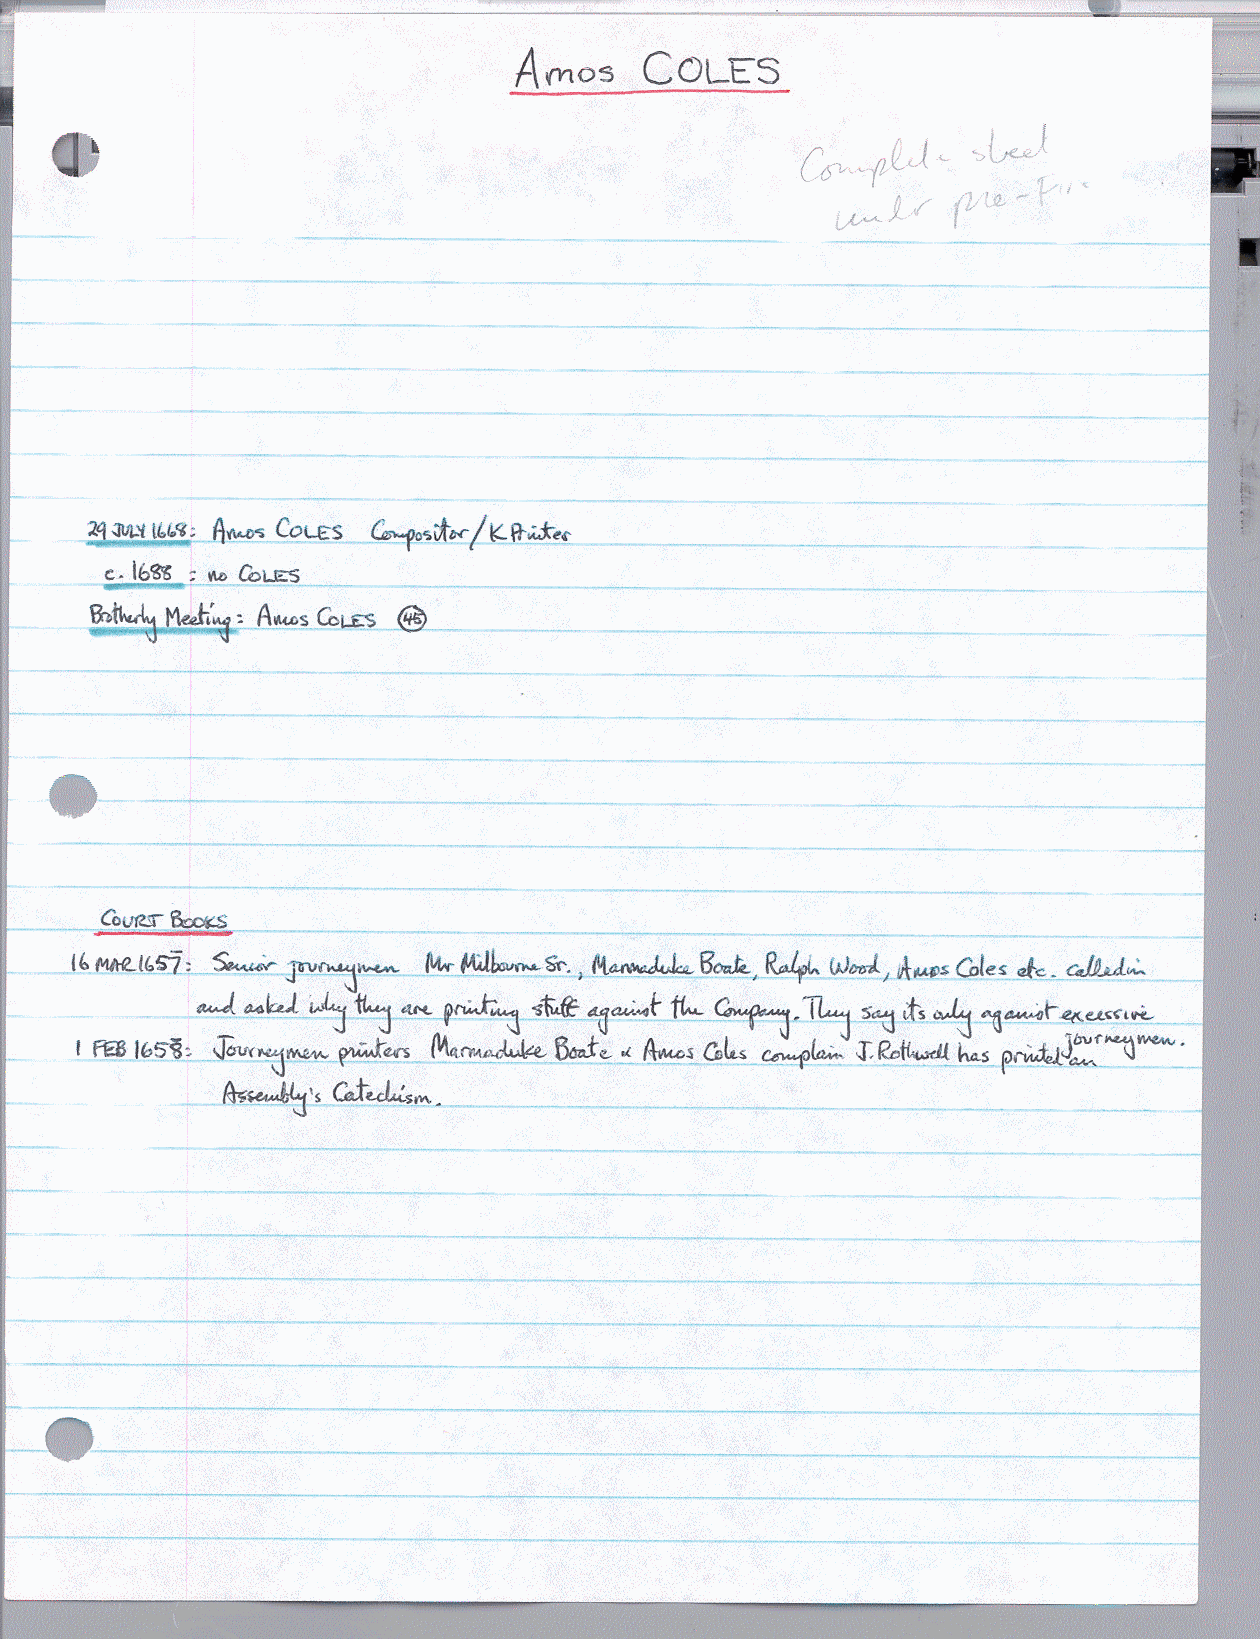 Amos COLES
Complete sheet
under pre-Fire
29 JULY 1668: Amos COLES Compositor/K Printer
c. 1688 : no COLES
Brotherly Meeting: Amos COLES 45
COURT BOOKS
16 MAR 1657: Senior journeymen Mr Milbourne Sr., Marmaduke Boate, Ralph Wood, Amos Coles etc. called in
and asked why they are printing stuff against the Company. They say its only against excessive
journeymen.
1 FEB 1658: Journeymen printers Marmaduke Boate & Amos Coles complain J. Rothwell has printed an
Assembly's Catechism.